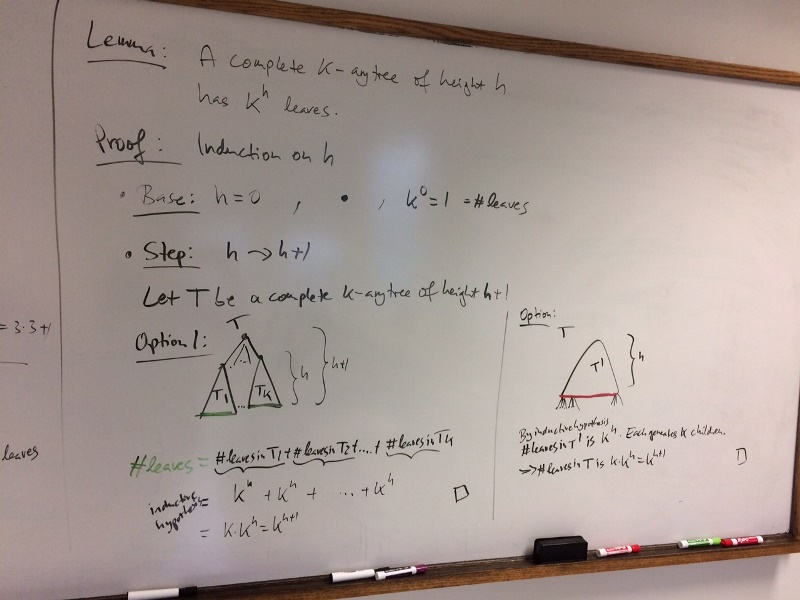 Lemma: A complete k-ary tree of height h
has k^h leaves.
Proof: Induction on h
• Base: h=0 , • , k^0=1 =#leaves
• Step: h → h+1
Let T be a complete k-ary tree of height h+1
Option 1:
T
T1 ... Tk
h
h+1
#leaves = #leaves in T1 + #leaves in T2 + .... + #leaves in Tk
inductive hypothesis = k^h + k^h + ... + k^h □
= k·k^h = k^h+1
Option:
T
T'
h
By inductive hypothesis
#leaves in T' is k^h. Each generates k children.
⇒ #leaves in T is k·k^h = k^h+1 □
= 3·3+1
leaves